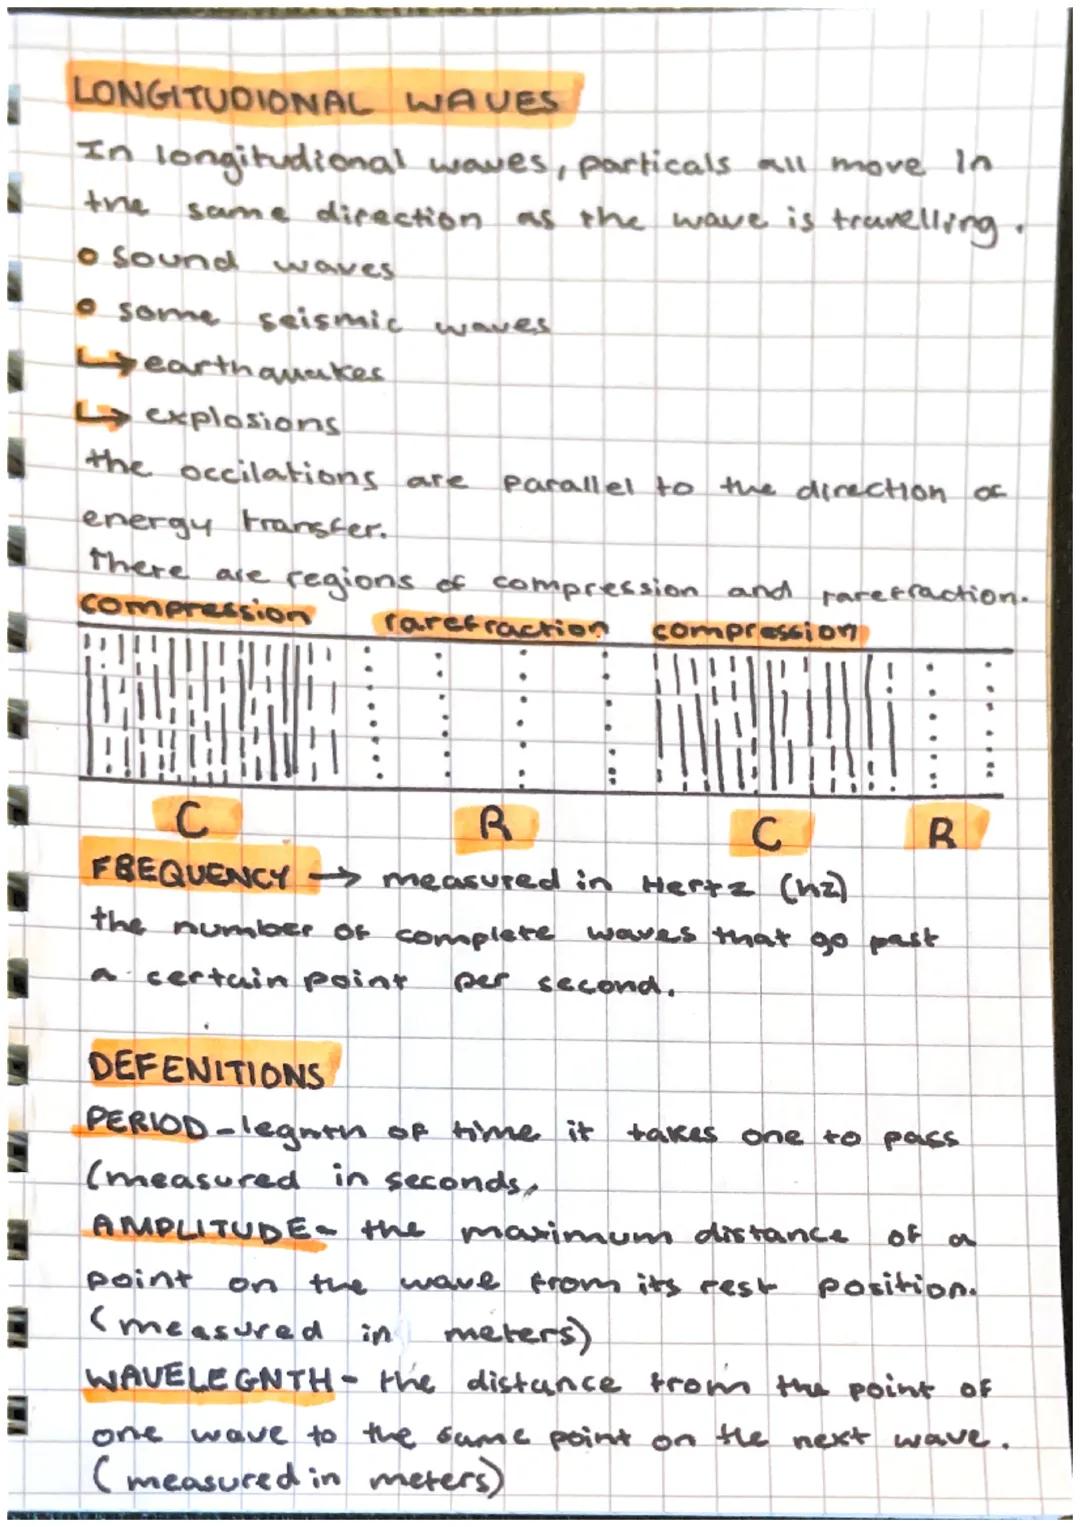 LONGITUDIONAL WAVES
In longitudional waves, particals all move in
the same direction as the wave is travelling.
sound waves
some seismic waves
↳ earthquakes
↳ explosions
the occilations are parallel to the direction of
energy transfer.
There are regions of compression and rarefraction.
compression rarefraction compression
C R C R
FREQUENCY → measured in Hertz (hz)
the number of complete waves that go past
a certain point per second.
DEFENITIONS
PERIOD - legnth of time it takes one to pass
(measured in seconds,
AMPLITUDE - the maximum distance of a
point on the wave from its rest position.
(measured in meters)
WAVELEGNTH - the distance from the point of
one wave to the same point on the next wave.
(measured in meters)